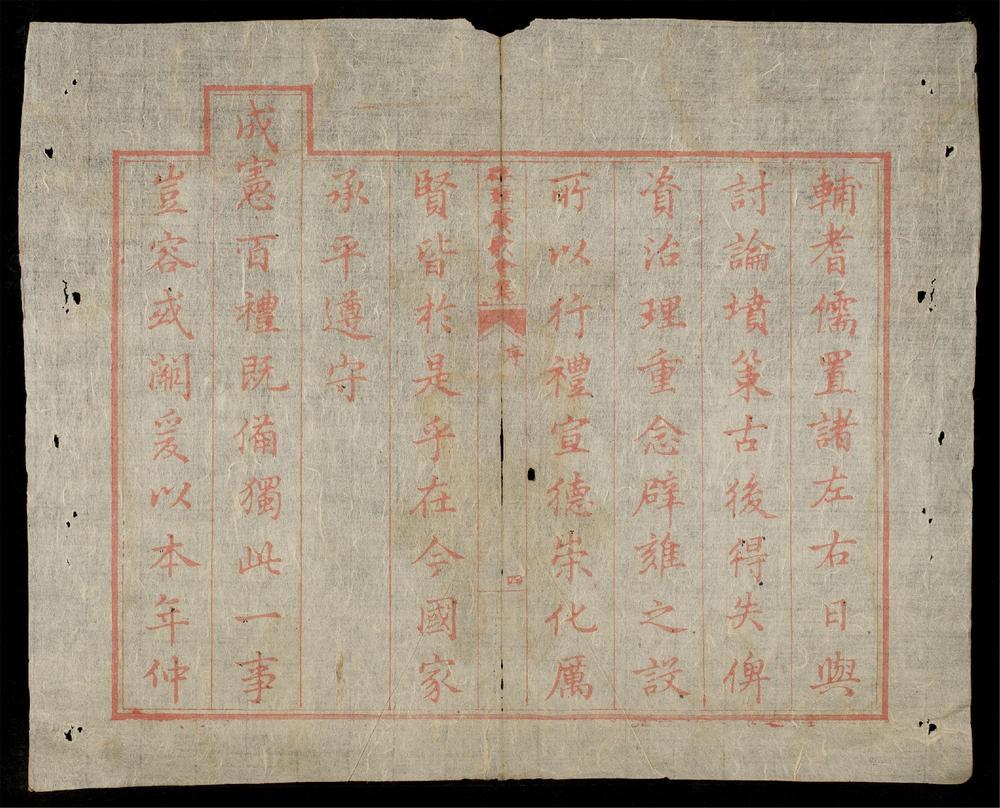 輔耆儒置諸左右日與
討論墳策古後得失俾
資治理重念辟雝之設
所以行禮宣德崇化厲
辟雝賡歌全集
序
四
賢皆於是乎在今國家
承平遵守
成憲百禮既備獨此一事
豈容或闕爰以本年仲